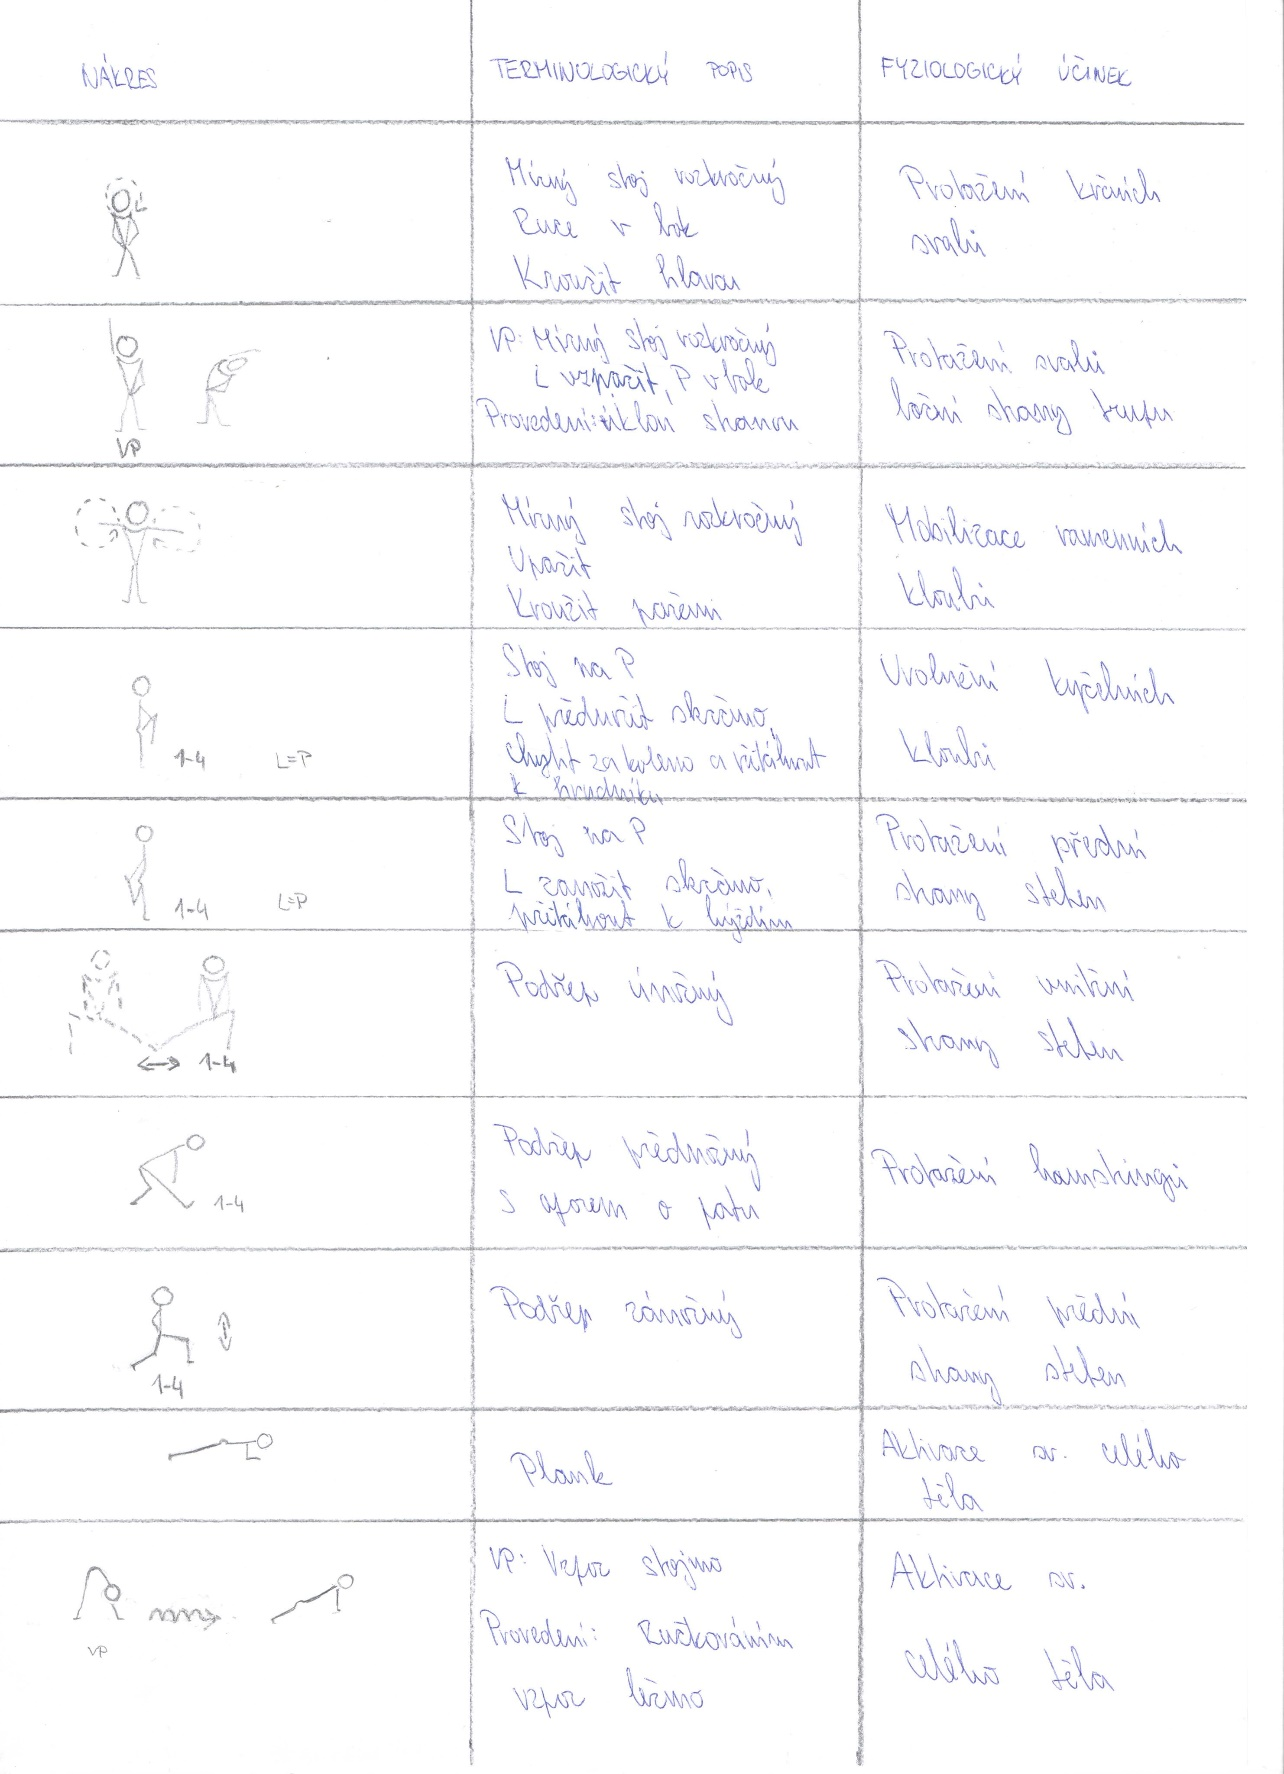 NÁKRES
TERMINOLOGICKÝ POPIS
FYZIOLOGICKÝ ÚČINEK
Mírný stoj rozkročný
Ruce v bok
Kroužit hlavou
Protažení krčních
svalů
VP
VP: Mírný stoj rozkročný
L vzpažit, P v bok
Provedení: úklon stranou
Protažení svalů
boční strany trupu
Mírný stoj rozkročný
Upažit
Kroužit pažemi
Mobilizace ramenních
kloubů
1-4 L=P
Stoj na P
L přednožit skrčmo,
chytit za koleno a přitáhnout
k hrudníku
Uvolnění kyčelních
kloubů
1-4 L=P
Stoj na P
L zanožit skrčmo,
přitáhnout k hýždím
Protažení přední
strany stehen
1-4
Podřep únožný
Protažení vnitřní
strany stehen
1-4
Podřep přednožný
s oporem o patu
Protažení hamstringů
1-4
Podřep zánožný
Protažení přední
strany stehen
Plank
Aktivace sv. celého
těla
VP
VP: Vzpor stojmo
Provedení: Ručkováním
vzpor ležmo
Aktivace sv.
celého těla